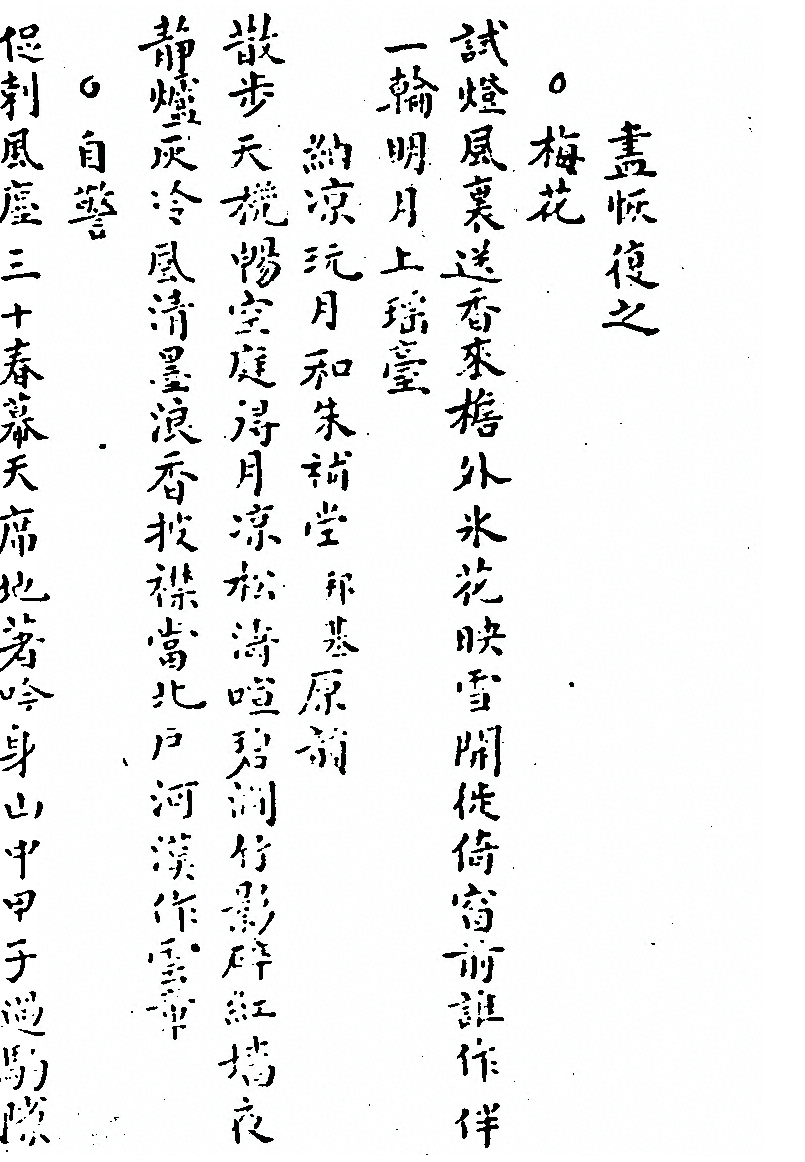 盡恢復之
○梅花
試燈風裏送香來檐外氷花映雪開徙倚窗前誰作伴
一輪明月上瑤臺
納凉玩月和朱補堂邦基原韻
散步天機暢空庭得月凉松濤喧碧澗竹影碎紅墻夜
靜爐灰冷風清墨浪香披襟當北戶河漢作雲章
○自警
促刺風塵三十春幕天席地著吟身山中甲子過駒隙